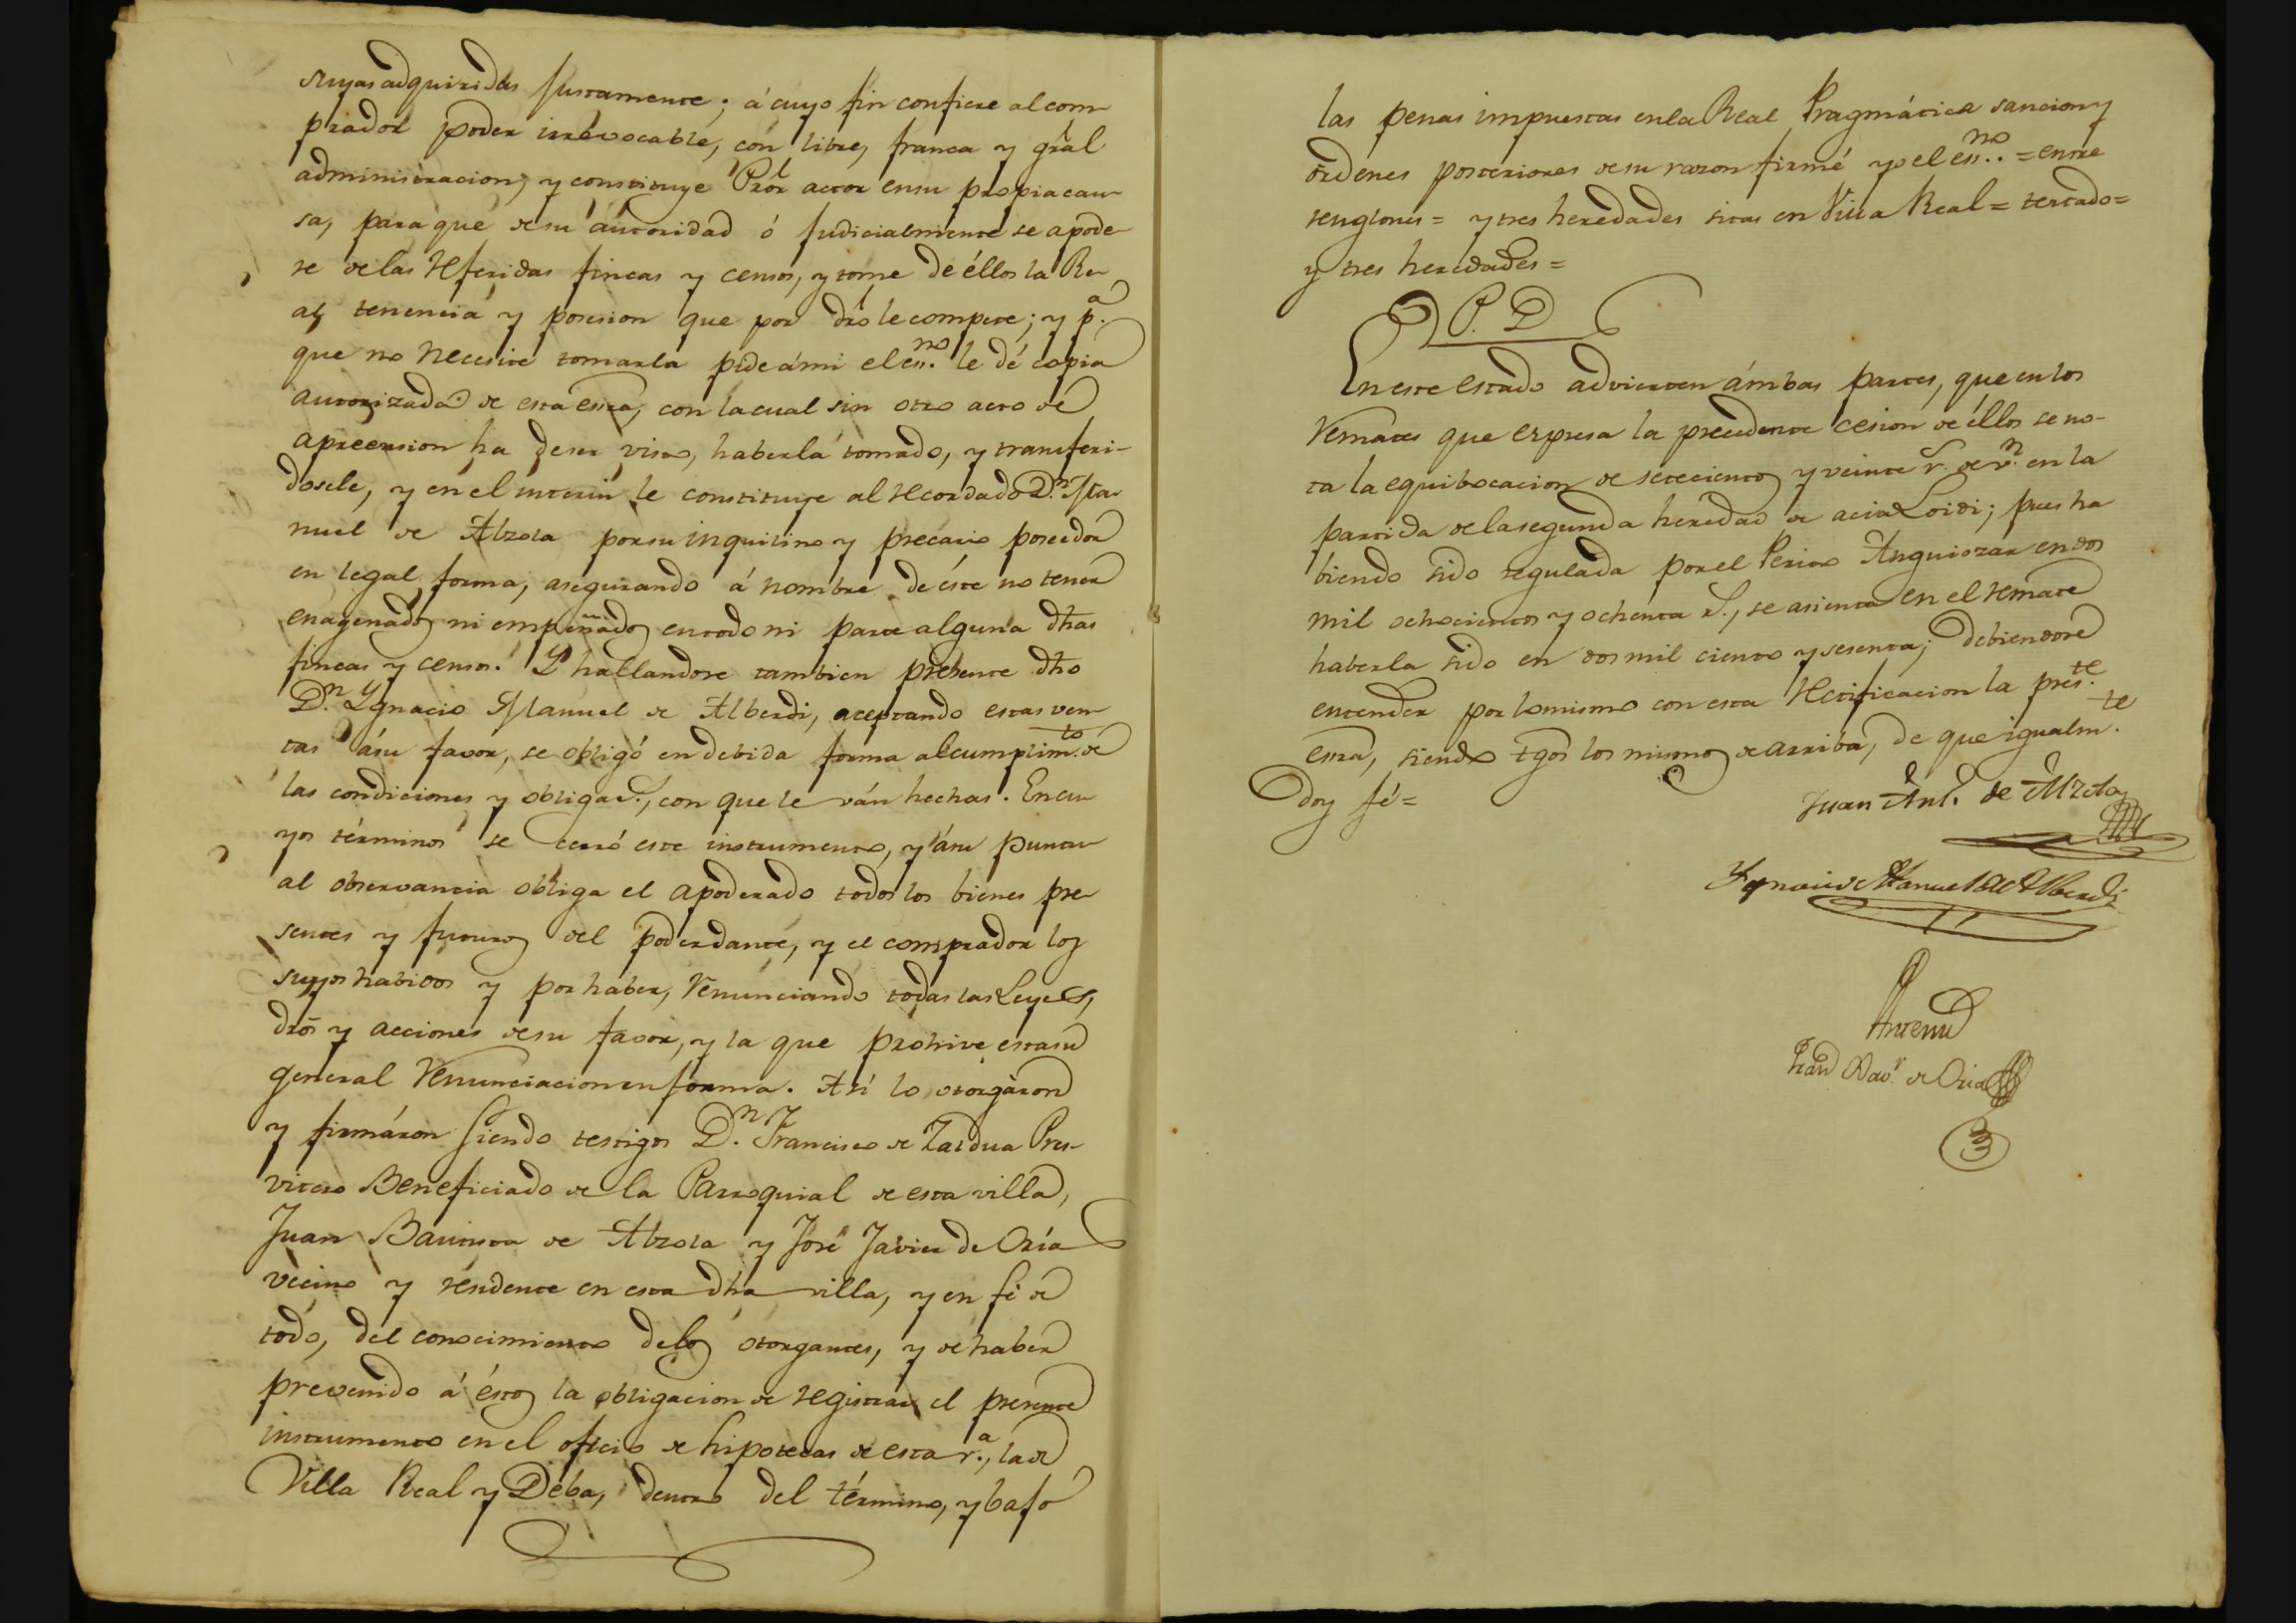 suyas adquiridas justamente; á cuyo fin confiere al com-
prador poder irrevocable, con libre, franca y gral
administracion, y constituye Prór actor en su propia cau-
sa, para que de su autoridad ó judicialmente se apode-
re de las referidas fincas y censos, y tome de éllos la Re-
al, tenencia y posesion que por dro le compete; y p.ª
que no necesite tomarla pide á mi el ess.no le dé copia
autorizada de esta essra, con la cual sin otro acto de
apreension ha de ser visto, haberla tomado, y transferi-
dosele, y en el interin le constituye al recordado D.n Ma-
nuel de Alzola por su inquilino y precario poseedor
en legal forma, asegurando á nombre de éste no tener
enagenado, ni empeñado, en todo ni parte alguna dhas
fincas y censos. Y hallandose tambien presente dho
D.n Ygnacio Manuel de Alberdi, aceptando estas ven-
tas á su favor, se obligó en debida forma al cumplim.to de
las condiciones y obligac.s, con que le ván hechas. En cu-
yos términos se cerró este instrumento, y á su puntu-
al observancia obliga el apoderado todos los bienes pre-
sentes y futuros del poderdante, y el comprador los
suyos habidos y por haber, renunciando todas las Leyes,
dros y acciones de su favor, y la que prohive esta su
general renunciacion en forma. Asi lo otorgáron
y firmáron siendo testigos D.n Francisco de Zaldua Pres-
vitero Beneficiado de la Parroquial de esta villa,
Juan Bautista de Alzola y José Javier de Oria
vecino y residente en esta dha villa, y en fé de
todo, del conocimiento de los otorgantes, y de haber
prevenido á éstos la obligacion de registrar el presente
instrumento en el oficio de hipotecas de esta v.ª, la de
Villa Real y Deba, dentro del término, y bajo
las penas impuestas en la Real Pragmática sancion y
órdenes posteriores de su razon firmé yo el ess.no = entre
renglones = y tres heredades sitas en Villa Real = testado =
y tres heredades =
P. D
En este estado advierten ámbas partes, que en los
remates que expresa la precedente cesion de éllos se no-
ta la equibocacion de setecientos y veinte r.s de v.n en la
partida de la segunda heredad de acia Loidi; pues ha
biendo sido regulada por el Perito Anguiozar en dos
mil ochocientos y ochenta r.s, se asienta en el remate
haberla sido en dos mil ciento y sesenta; debiendose
entender por lo mismo con esta rectificacion la pres.te
essra, siendo tgos los mismos de arriba, de que igualm.te
doy fé =
Juan Ant. de Alzola
Ygnacio Manuel de Alberdi
Ante mi
Juan Bau.ta de Oria
3